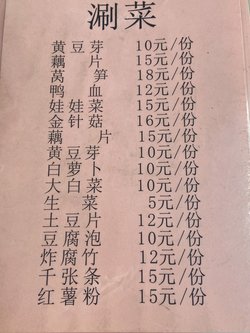 涮菜
黄豆芽 10元/份
藕片 15元/份
莴笋 18元/份
鸭血 12元/份
娃娃菜 15元/份
金针菇 16元/份
藕片 15元/份
黄豆芽 10元/份
白萝卜 10元/份
大白菜 10元/份
生菜 5元/份
土豆片 12元/份
豆腐泡 10元/份
炸腐竹 12元/份
千张条 15元/份
红薯粉 15元/份